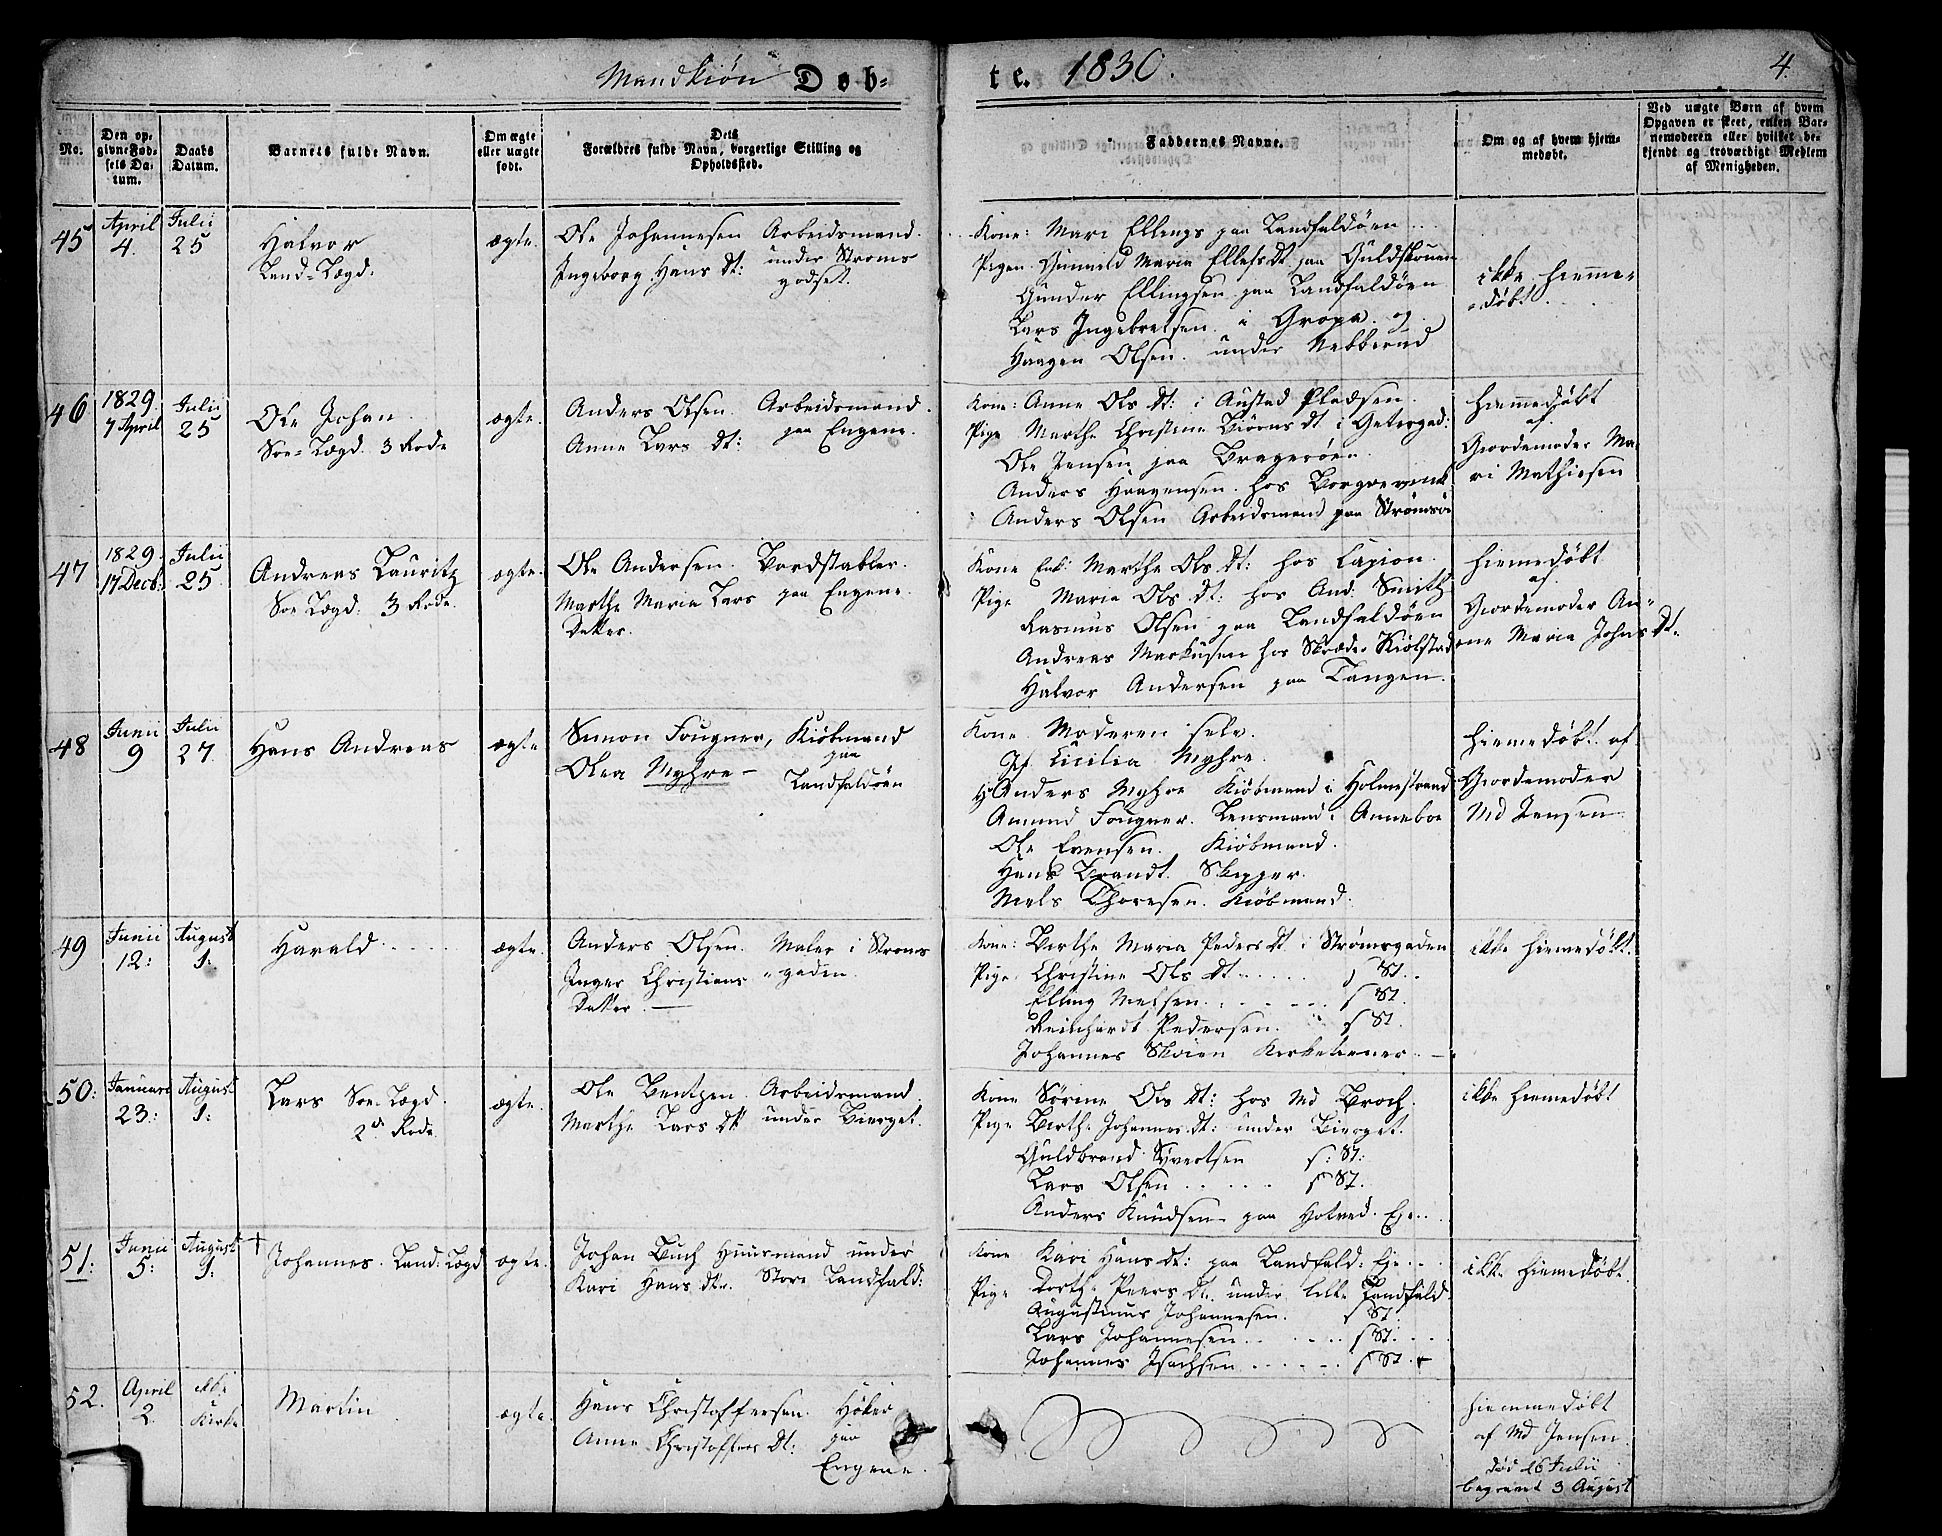 Mandkiøn Døb- te. 1830. 4.
No.
Den opgivne Fødsels Datum.
Daabs Datum.
Barnets fulde Navn.
Om ægte eller uægte født.
Dets Forældres fulde Navn, borgerlige Stilling og Opholdssted.
Faddernes Navne.
Om og af hvem hjemmedøbt.
Ved uægte Børn af hvem Opgaven er skeet, enten Barnemoderen eller hvilket bekjendt og troværdigt Medlem af Menigheden.
45 April 4. Julii 25
Halvor
Land-Lægd.
ægte.
Ole Johannesen Arbeidsmand
Ingeborg Hans Dt: under Strømsgodset.
Kone: Mari Ellings paa Landfaldøen
Pigen Gunnild Maria Ellefs Dt paa
Gunder Ellingsen paa Landfaldøen
Lars Ingebretsen i Gropa og
Haagen Olsen under Nebberud
ikke hiemmedøbt
46 1829. 7 April Julii 25
Ole Johan
Søe-Lægd. 3 Rode
ægte.
Anders Olsen. Arbeidsmand
Anne Lars Dt: paa Engene.
Kone: Anne Ols Dt: i Austad Pladsen.
Pige Marthe Christine Biørns Dt i
Ole Jensen paa Bragerøen
Anders Haagensen hos Borgrevink
Anders Olsen Arbeidsmand paa Strømsø
hiemmedøbt
af
Giordemoder Mari Mathiesen
47 1829. 17 Decb: Julii 25
Andreas Lauritz
Søe Lægd: 3 Rode.
ægte.
Ole Andersen. Bordstabler.
Marthe Maria Lars paa Engene.
Datter.
Kone Enk: Marthe Ols Dt: hos
Pige Maria Ols Dt: hos And: Smith
Rasmus Olsen paa Landfaldøen
Andreas Markusen hos Skræder Kiølstad
Halvor Andersen paa Tangen.
hiemedøbt
af
Giordemoder Anne Maria Johns Dt.
48 Junii 9 Julii 27
Hans Andreas
ægte
Simon Fougner, Kiøbmand
paa
Olea Myhre - Landfaldøen
Kone Moderen selv.
Jf. Cicilia Myhre.
Hr Anders Myhre Kiøbmand i Holmestrand
Amund Fougner. Lensmand i Anneboe
Ole Evensen. Kiøbmand.
Hans Brandt. Skipper.
Niels Thoresen. Kiøbmand.
hiemedøbt af
Giordemoder
Md Jensen
49 Junii 12: August 1:
Harald
ægte.
Anders Olsen. Maler i Strøms
Inger Christians gaden.
Datter.
Kone: Berthe Maria Peders Dt. i Strømsgaden
Pige Christine Ols Dt s St.
Elling Nielsen s St.
Reinhardt Pedersen. s St.
Johannes Skoien Kirketiener.
ikke hiemedøbt.
50: Januari 23: August 1:
Lars Søe Lægd.
2den Rode.
ægte.
Ole Bentzen Arbeidsmand
Marthe Lars Dt under Bierget.
Kone Sørine Ols Dt: hos Md Broch.
Pige Berthe Johannes Dt: under Bierget.
Guldbrand Syvertsen s: St:
Lars Olsen s St.
Anders Knudsen paa Hotved Eje.
ikke hiemedøbt
51: Junii 5: August 1: †
Johannes. Land: Lægd
ægte.
Johan Buch Huusmand under
Kari Hans Dtr. Store Landfald:
Kone Kari Hans Dt: paa Landfald: Eje
Pige Dorthe Peers Dt. under lille Landfald.
Augustinus Johannesen. s St.
Lars Johannesen s St.
Johannes Isachsen s St.
ikke hiemedøbt.
52. April 2. ikke i Kirke
Martin
ægte.
Hans Christoffersen. Høker
Anne Christoffers Dt: paa
Engene.
hiemmedøbt
af Md Jensen.
død 26 Julii
begravet 3 August